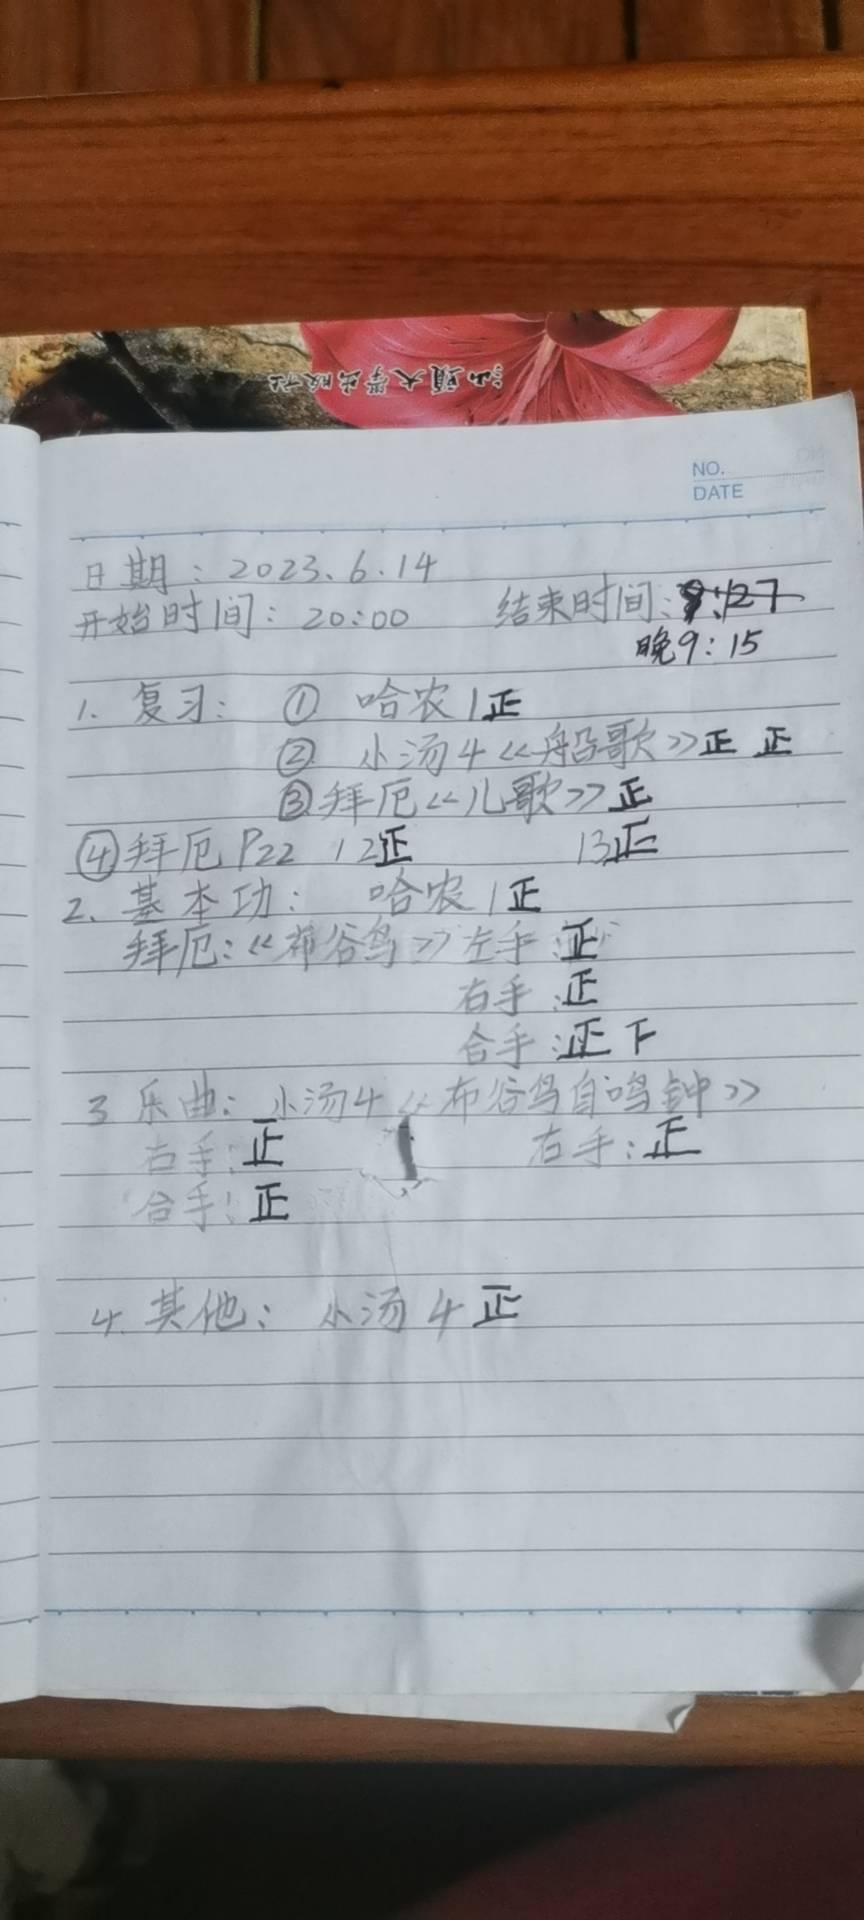 汕頭大學出版社
NO.
DATE
日期：2023.6.14
开始时间：20:00 结束时间：9:127
晚9:15
1. 复习：① 哈农1正
② 小汤4《船歌》正 正
③拜厄《儿歌》正
④拜厄P22 12正 13正
2. 基本功：哈农1正
拜厄：《布谷鸟》左手：正
右手：正
合手：正 下
3 乐曲：小汤4《布谷鸟自鸣钟》
右手：正 右手：正
合手：正
4. 其他：小汤4正